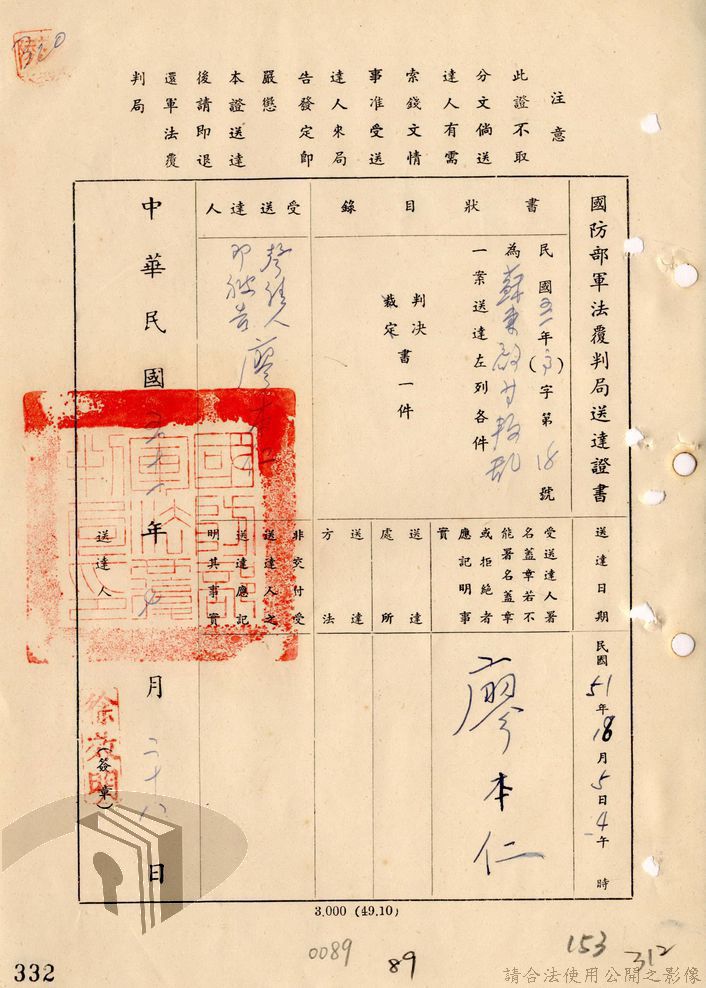 注意
此證不取
分文倘送
達人有需
索錢文情
事准受送
達人來局
告發定即
嚴懲
本證送達
後請即退
還軍法覆
判局
國防部軍法覆判局送達證書
書狀目錄
民國五一年( )字第18號
為蘇東啟等叛亂
一案送達左列各件
判決
裁定
書一件
受送達人
聲請人
即被告 廖本仁
送達日期
民國51年 月5日4午 時
受送達人署
名蓋章若不
能署名蓋章
或拒絕者
應記明事
實
廖本仁
送達處所
送達方法
非交付受
送達人之
送達應記
明其事實
中華民國五十一年 月二十八日
送達人
徐 明
(簽章)
國防部軍法覆判局印
3.000 (49.10)
0089
89
153
312
332
請合法使用公開之影像